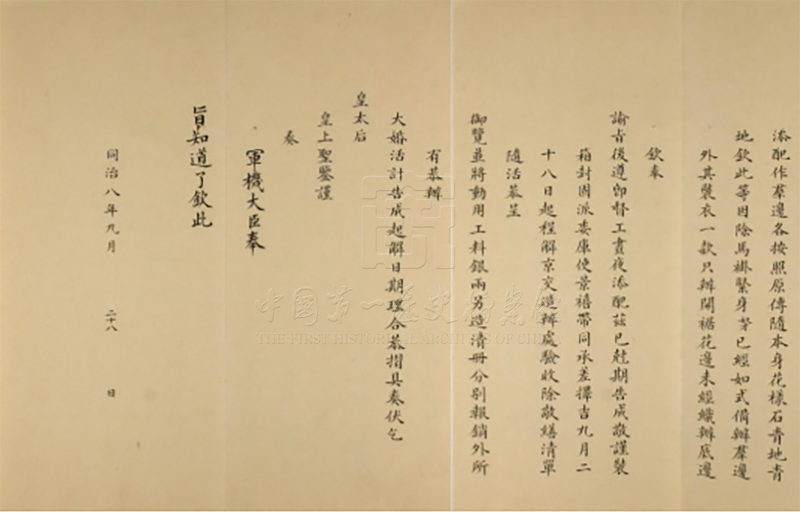 添配作羣邊各按照原傳隨本身花樣石青地青
地欽此等因除馬褂緊身等已經如式備辦羣邊
外其襞衣一款只辦開裾花邊未經織辦底邊
欽奉
諭旨後遵卽督工晝夜添配茲已尅期告成敬謹裝
箱封固派委庫使景禧帶同承差擇吉九月二
十八日起程解京交造辦處驗收除敬繕清單
隨活恭呈
御覽並將動用工料銀兩另造清冊分別報銷外所
有恭辦
大婚活計告成起解日期理合恭摺具奏伏乞
皇太后
皇上聖鑒謹
奏
軍機大臣奉
旨知道了欽此
同治八年九月 二十八 日
中國第一歷史檔案館
THE FIRST HISTORICAL ARCHIVES OF CHINA